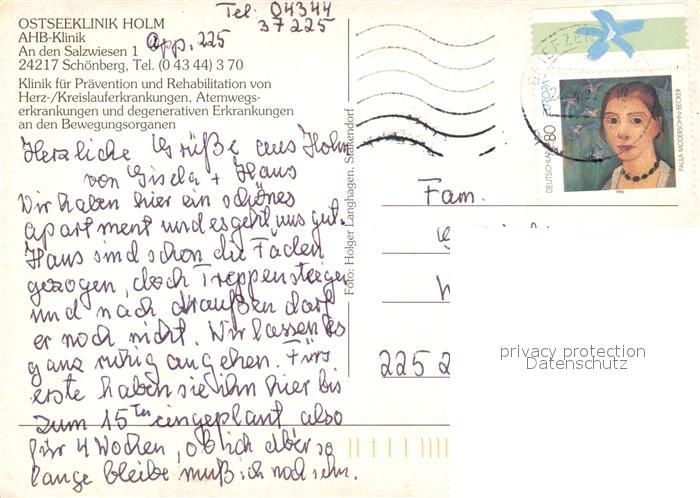 Tel. 04344
37225
OSTSEEKLINIK HOLM
AHB-Klinik
An den Salzwiesen 1 App. 225
24217 Schönberg, Tel. (0 43 44) 3 70
Klinik für Prävention und Rehabilitation von
Herz-/Kreislauferkrankungen, Atemwegs-
erkrankungen und degenerativen Erkrankungen
an den Bewegungsorganen
Herzliche Grüße aus Holm
von Gisela + Hans
Wir haben hier ein schönes
apartment und es geht uns gut.
Hans sind schon die Fäden
gezogen, doch Treppensteigen
und nach draußen darf
er noch nicht. Wir lassen es
ganz ruhig angehen. Fürs
erste haben sie ihn hier bis
zum 15ten eingeplant, also
für 4 Wochen, ob ich aber so
lange bleibe muß ich noch sehn.
Foto: Holger Langhagen, Stakendorf
Fam.
W
225 2
DEUTSCHLAND 80 EUROPA
PAULA MODERSOHN-BECKER
1996
privacy protection
Datenschutz